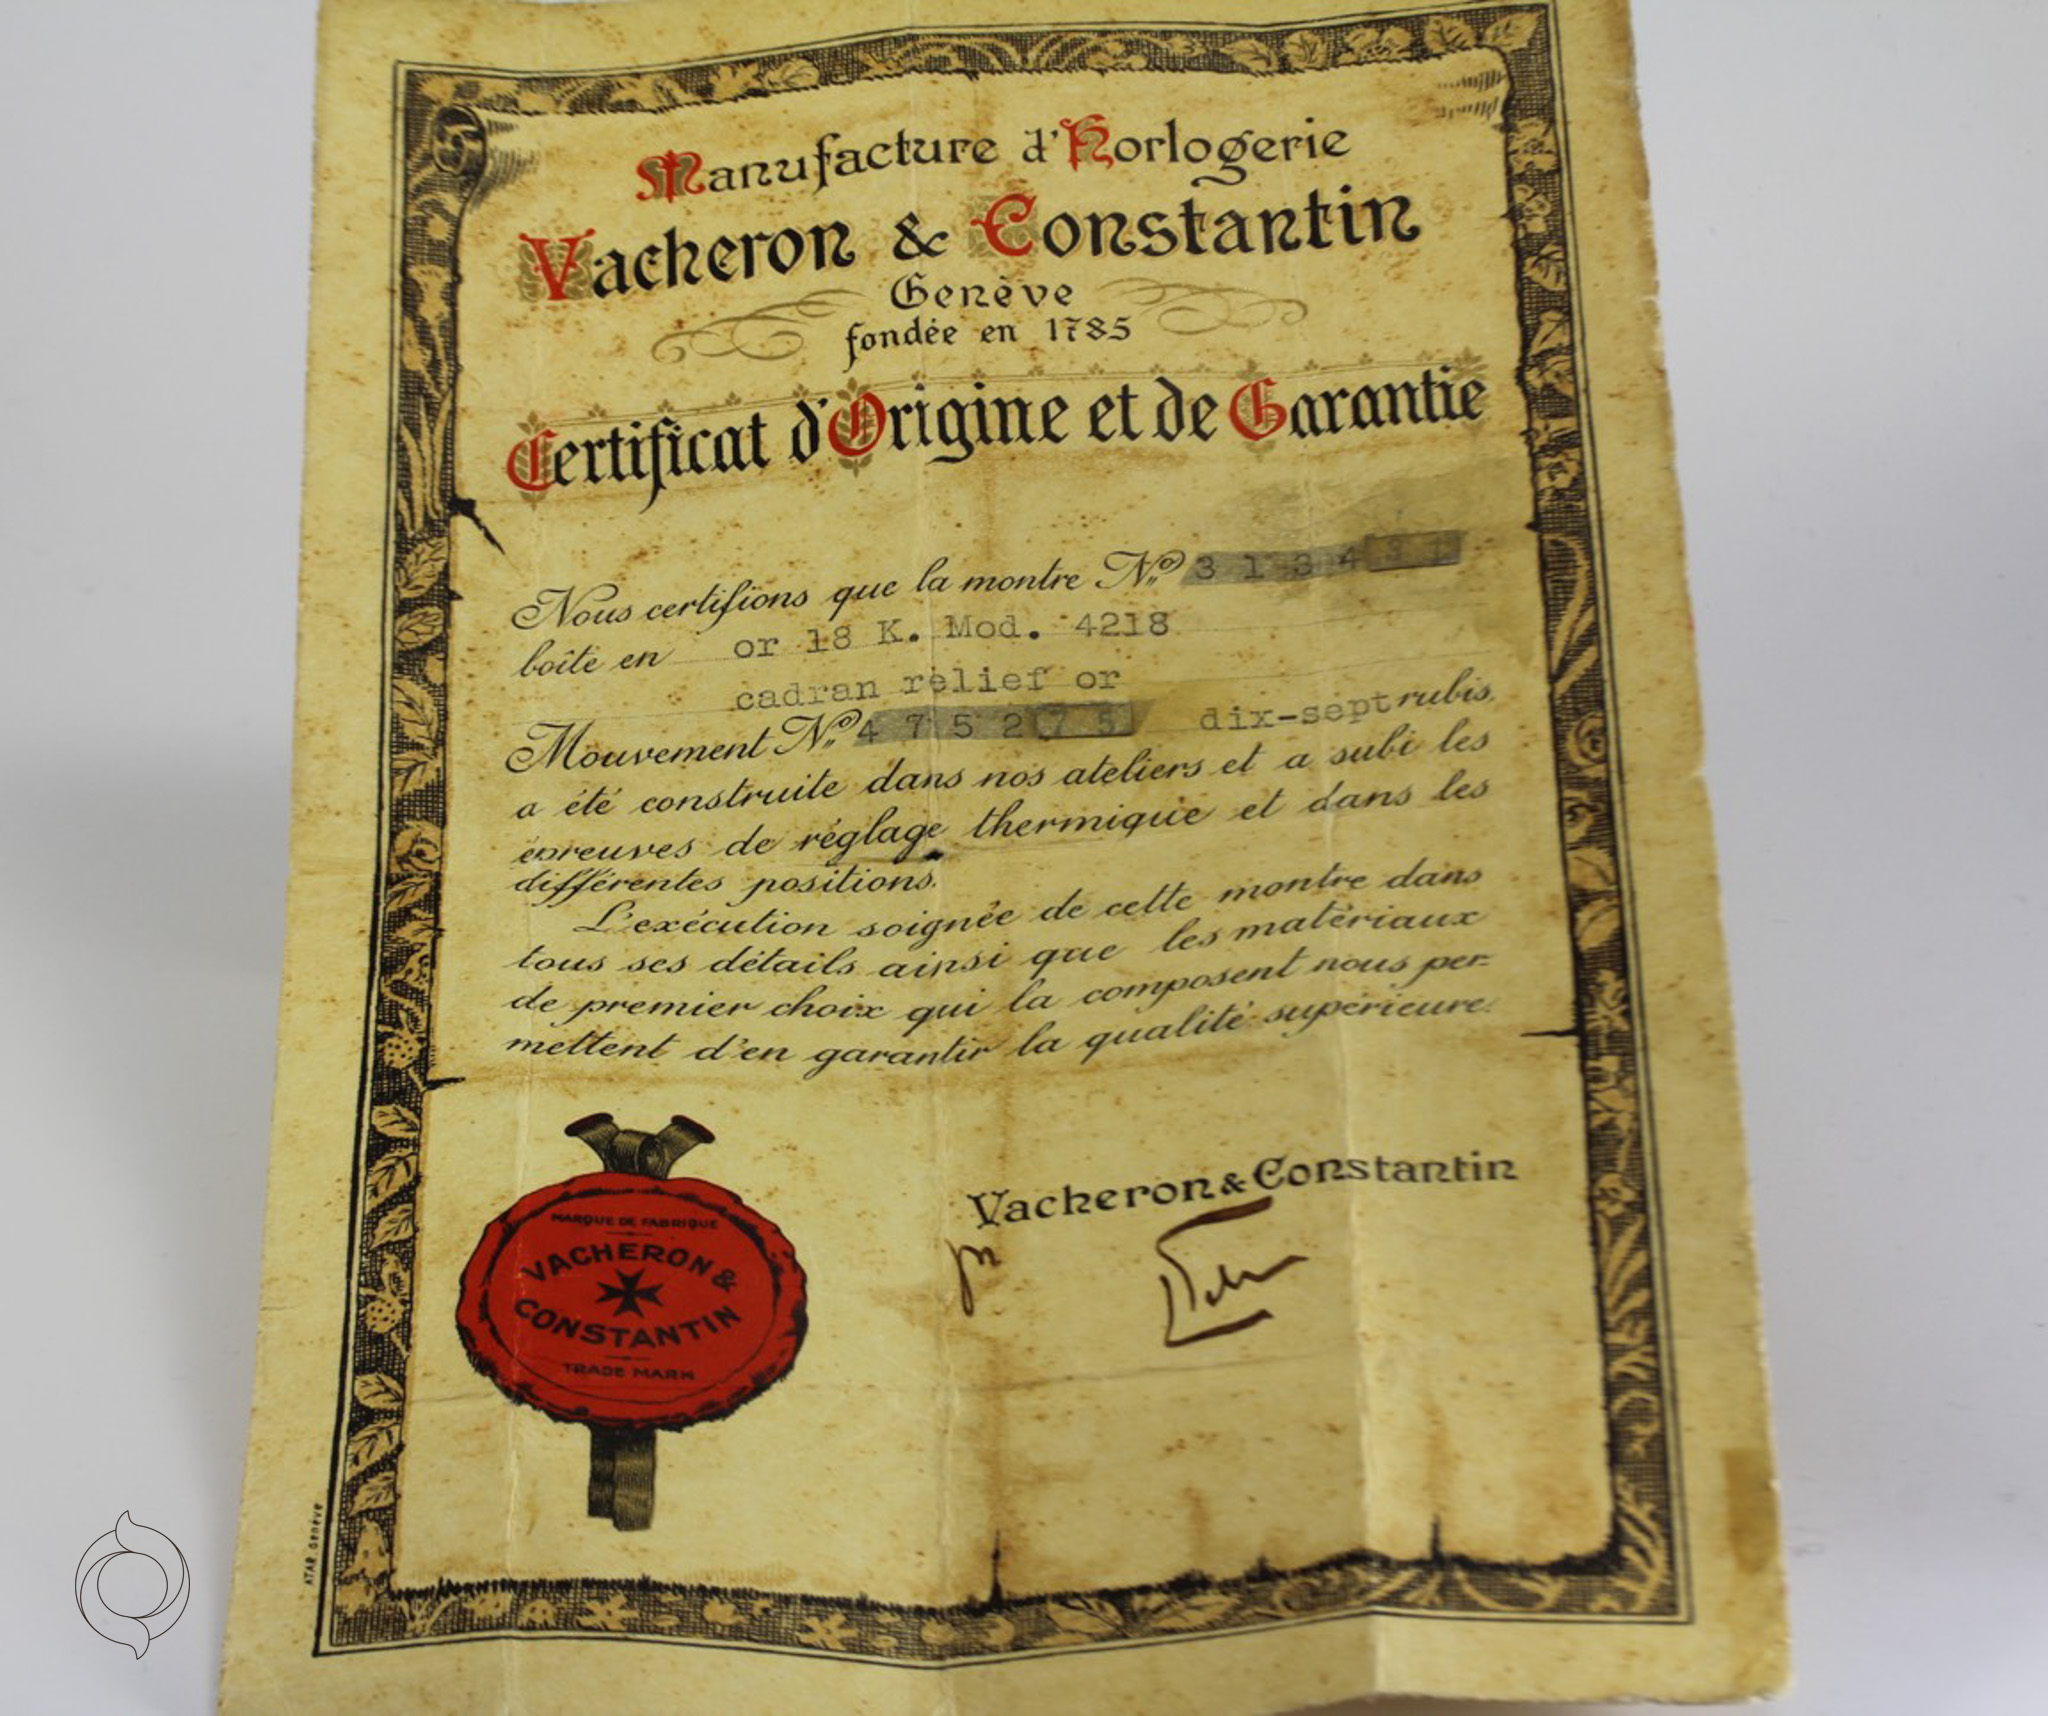 Manufacture d'Horlogerie
Vacheron & Constantin
Genève
fondée en 1785
Certificat d'Origine et de Garantie
Nous certifions que la montre No
boîte en or 18 K. Mod. 4218
cadran relief or
Mouvement No 475275 dix-sept rubis,
a été construite dans nos ateliers et a subi les
épreuves de réglage thermique et dans les
différentes positions.
L'exécution soignée de cette montre dans
tous ses détails ainsi que les matériaux
de premier choix qui la composent nous per-
mettent d'en garantir la qualité supérieure.
Vacheron & Constantin
MARQUE DE FABRIQUE
VACHERON &
CONSTANTIN
TRADE MARK
ATAR GENÈVE